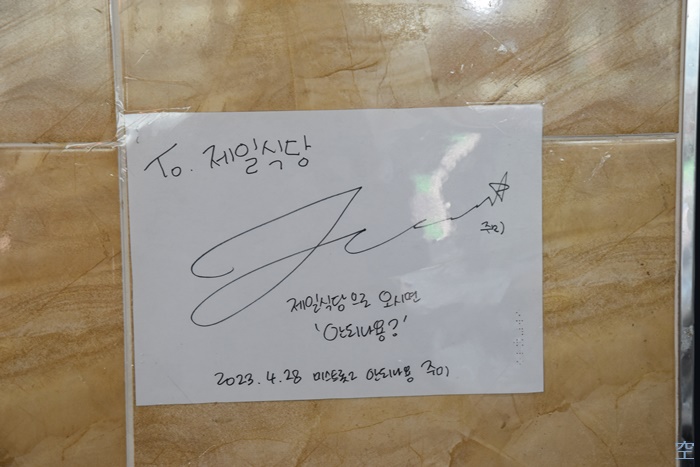 To. 제일식당
주미
제일식당으로 오시면
'안되나용?'
2023. 4. 28 미스트롯2 안되나용 주미
空